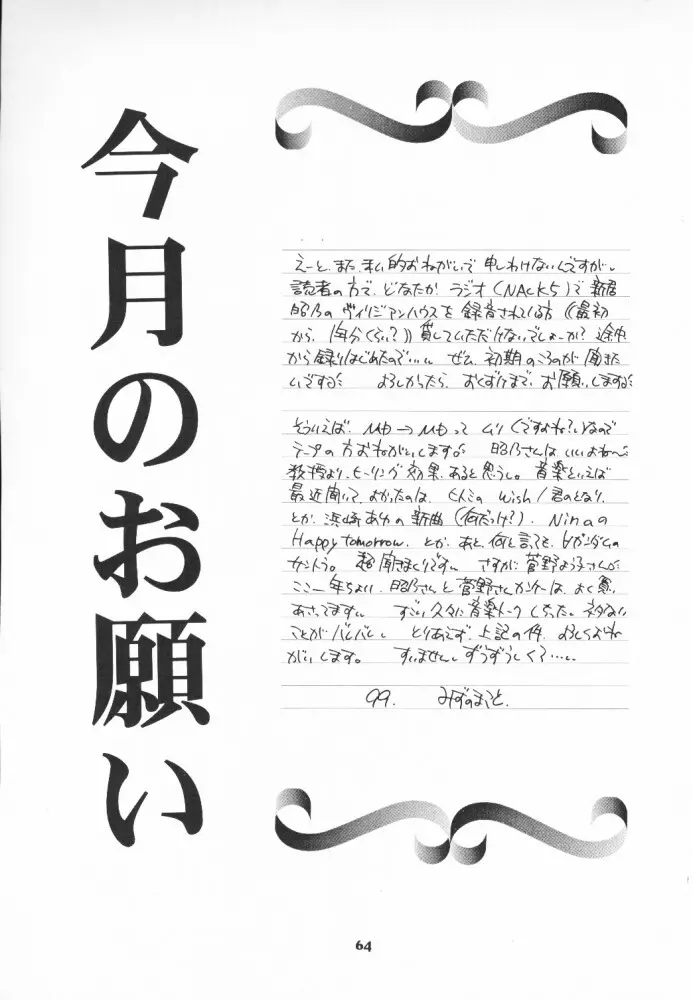 今月のお願い
えーと、また、私的おねがいで申しわけないんですが。
読者の方で、どなたか ラジオ(NACK5)で 新居
昭乃の ヴィリジアンハウスを 録音されてる方 《最初
から、1年分くらい?》 貸していただけないでしょーか? 途中
から録りはじめたので…。 ぜひ、初期のころのが 聞きた
いです。 よろしかったら、おくづけまで、お願いします。
そういえば、MD→MDって ムリ(ですよね?)なので
テープの方おねがいします。 昭乃さんは いいよね〜。
教授より、ヒーリング効果、あると思うし。 音楽といえば
最近聞いて、よかったのは、 Wish/君のとなり
とか、浜崎あゆの新曲(何だっけ?)、Ninaの
Happy tomorrow. とか、あと、何と言っても、∀ガンダムの
サントラ。 超聞きまくりです。 さすがに 菅野よう子さん
ここ一年ちょい、昭乃さんと菅野さん は、よく買い
あさってます。 すごい久々に音楽トークしちった。ネタない
ことがバレバレ。 とりあえず、上記の件、よろしくおね
がいします。 すいません。ずうずうしくて…。
99. みずのまこと.
64